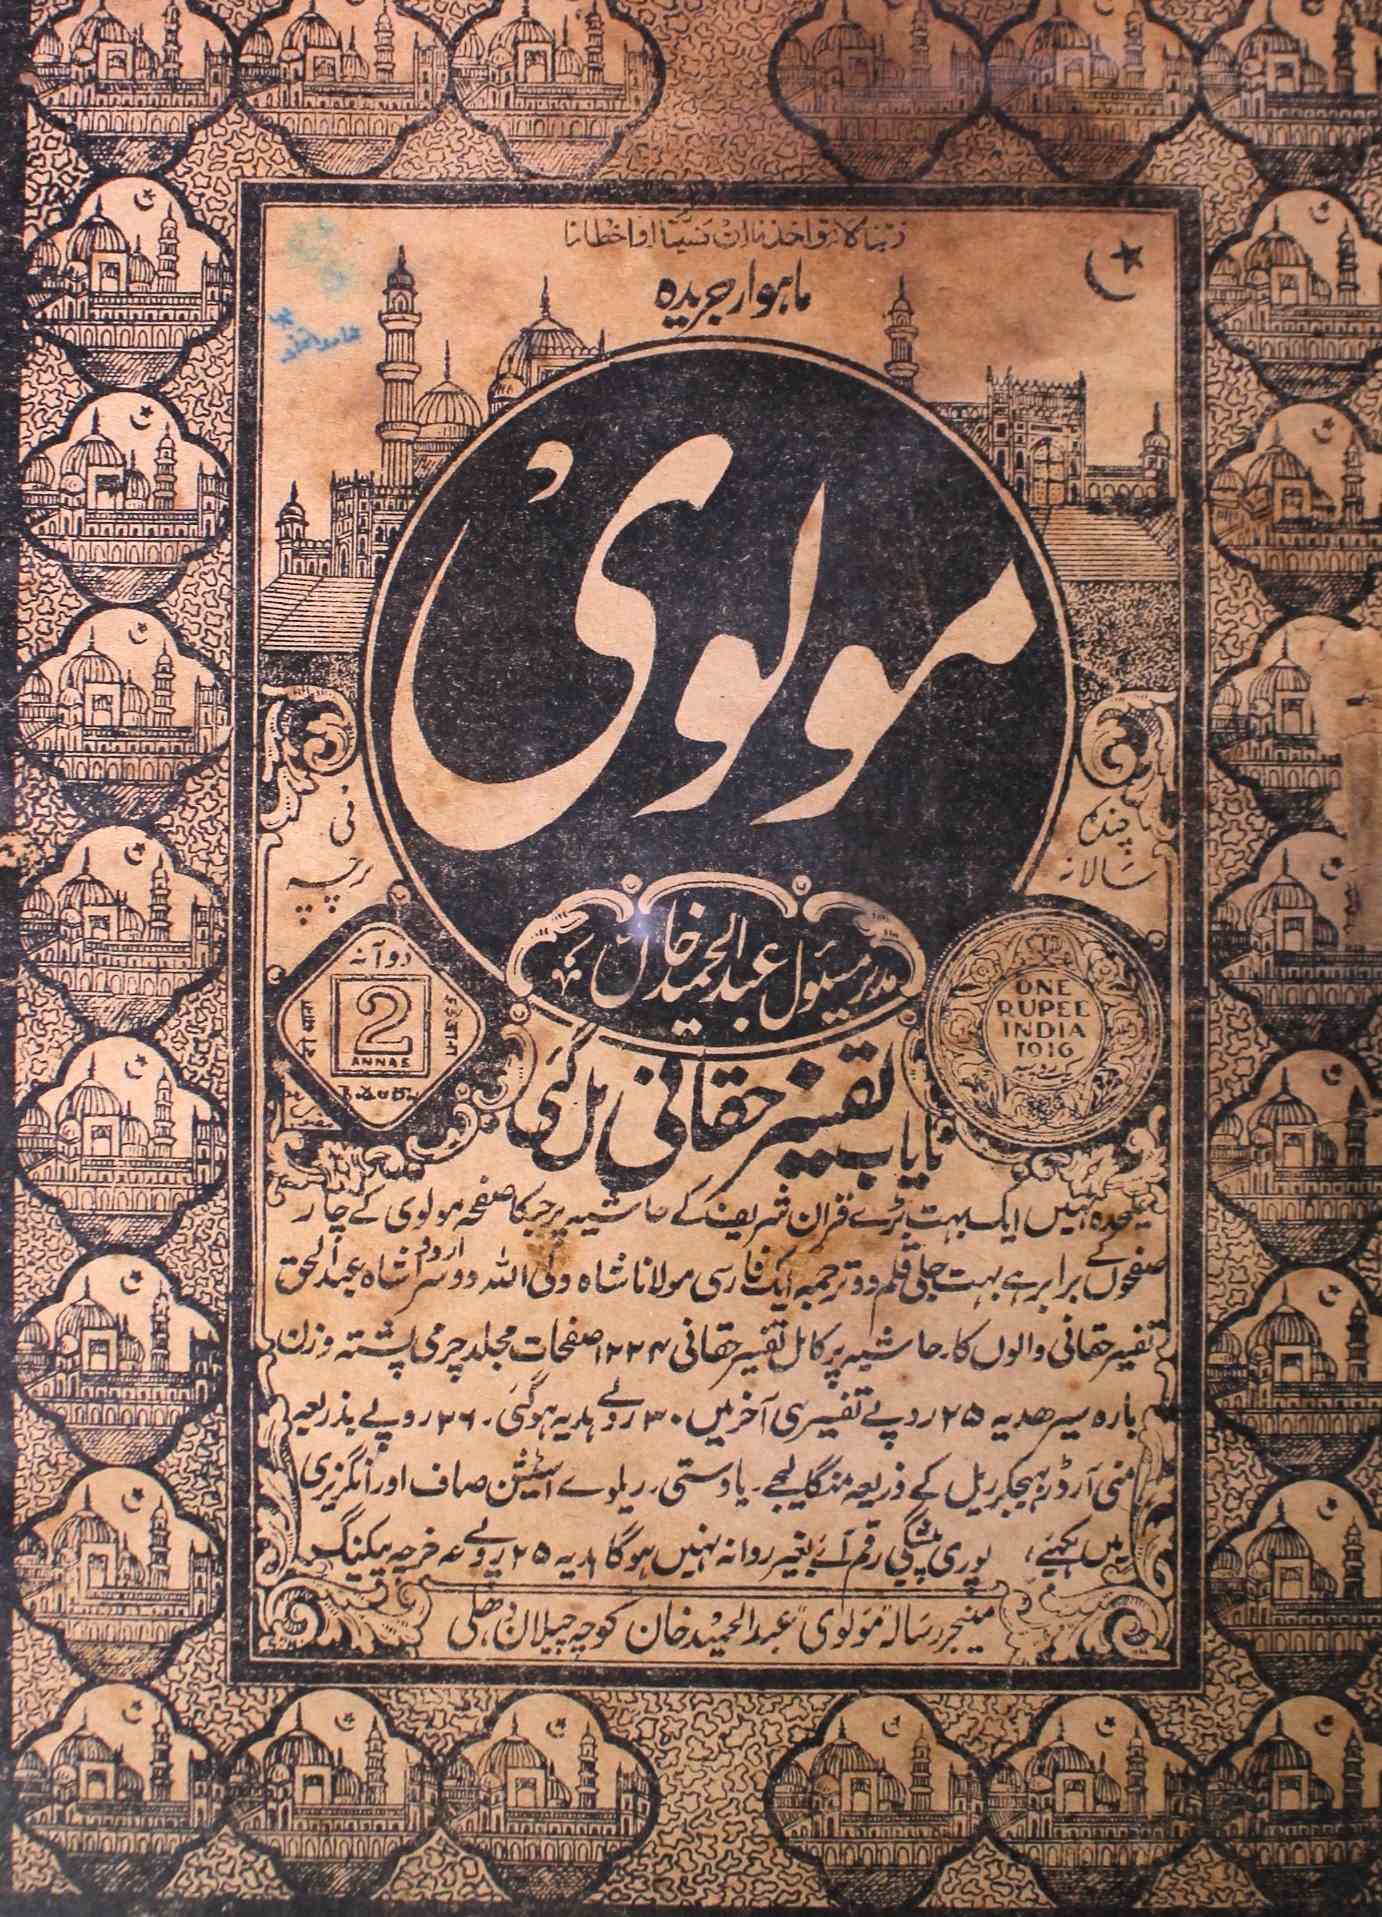 ربنا لا تؤاخذنا ان نسینا او اخطأنا
ماہوار جریدہ
مولوی
چندہ سالانہ
فی پرچہ
مدیر مسئول عبدالحمید خاں
ONE
RUPEE
INDIA
1916
یک روپیہ
دو آنہ
2
ANNAS
نایاب تفسیر حقانی مل گئی
علیحدہ نہیں ایک بہت بڑے قرآن شریف کے حاشیہ پر جس کا صفحہ مولوی کے چار
صفحوں کے برابر ہے بہت جلی قلم دو ترجمہ ایک فارسی مولانا شاہ ولی اللہ دوسرا اردو شاہ عبدالحق
تفسیر حقانی والوں کا۔ حاشیہ پر کامل تفسیر حقانی ۱۲۲۴ صفحات مجلد چرمی پشتہ وزن
بارہ سیر ھدیہ ۲۵ روپے تفسیر ہی آخر میں ۳۰ روپے ہدیہ ہوگئی۔ ۲۶ روپے بذریعہ
منی آرڈر بھیجکر ریل کے ذریعہ منگا لیجے۔ یا دستی۔ ریلوے اسٹیشن صاف اور انگریزی
میں لکھئے، پوری پیشگی رقم آئے بغیر روانہ نہیں ہوگا ہدیہ ۲۵ روپے خرچہ پیکنگ
مینجر رسالہ "مولوی" عبدالحمید خان کوچہ چیلان دھلی